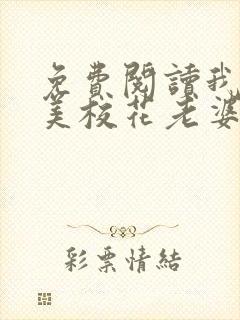 免費閱讀我
美校花老婆
彩票情結